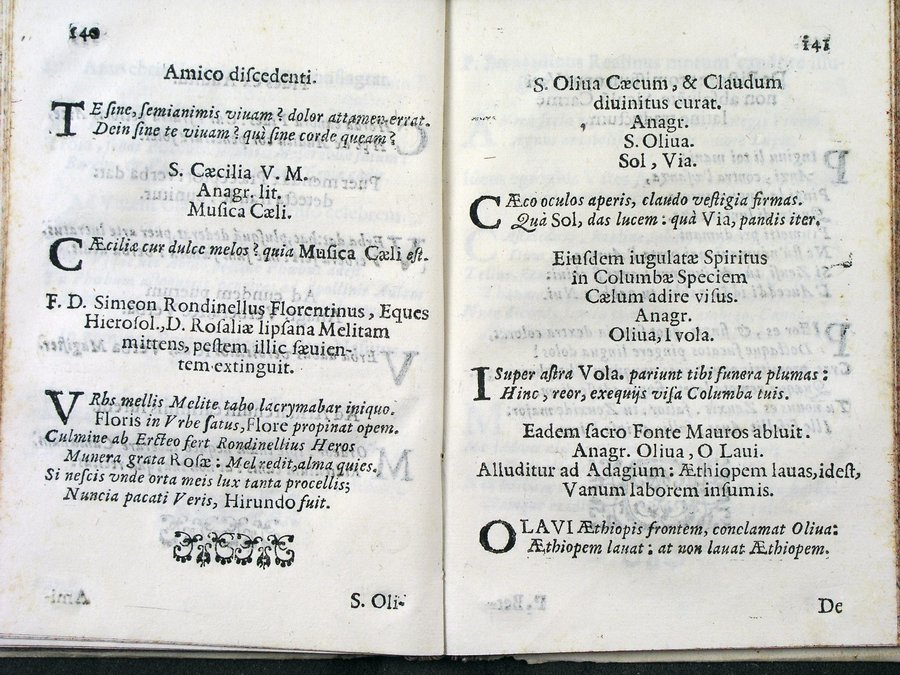 140
Amico diſcedenti.
TE ſine, ſemianimis viuam? dolor attamen errat.
Dein ſine te viuam? quì ſine corde queam?
S. Cæcilia V. M.
Anagr. lit.
Muſica Cæli.
CÆciliæ cur dulce melos? quia Muſica Cæli eſt.
F. D. Simeon Rondinellus Florentinus, Eques
Hieroſol., D. Roſaliæ lipſana Melitam
mittens, peſtem illic ſæuien-
tem extinguit.
VRbs mellis Melite tabo lacrymabar iniquo.
Floris in Vrbe ſatus, Flore propinat opem.
Culmine ab Ercteo fert Rondinellius Heros
Munera grata Roſæ: Mel redit, alma quies.
Si neſcis vnde orta meis lux tanta procellis;
Nuncia pacati Veris, Hirundo fuit.
S. Oli-
141
S. Oliua Cæcum, & Claudum
diuinitus curat.
Anagr.
S. Oliua.
Sol, Via.
CÆco oculos aperis, claudo veſtigia firmas.
Quà Sol, das lucem: quà Via, pandis iter.
Eiuſdem iugulatæ Spiritus
in Columbæ Speciem
Cælum adire viſus.
Anagr.
Oliua, I vola.
ISuper aſtra Vola. pariunt tibi funera plumas:
Hinc, reor, exequijs viſa Columba tuis.
Eadem ſacro Fonte Mauros abluit.
Anagr. Oliua, O Laui.
Alluditur ad Adagium: Æthiopem lauas, ideſt,
Vanum laborem inſumis.
OLAVI Æthiopis frontem, conclamat Oliua:
Æthiopem lauat: at non lauat Æthiopem.
De